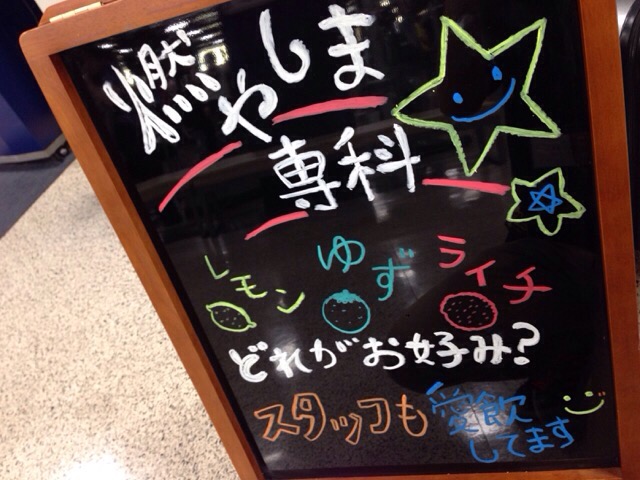 燃やしま
専科
レモン ゆず ライチ
どれがお好み?
スタッコも愛飲
してます